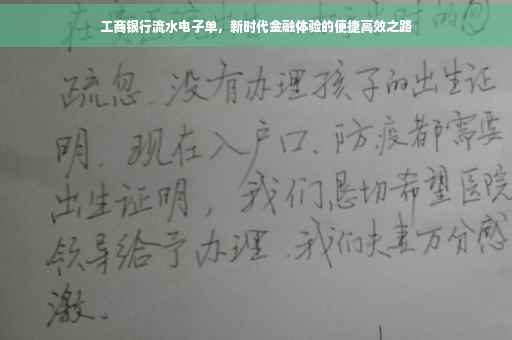 工商银行流水电子单，新时代金融体验的便捷高效之路
疏忽.没有办理孩子的出生证
明.现在入户口、防疫都需要
出生证明，我们恳切希望医院
领导给予办理.我们夫妻万分感
激。